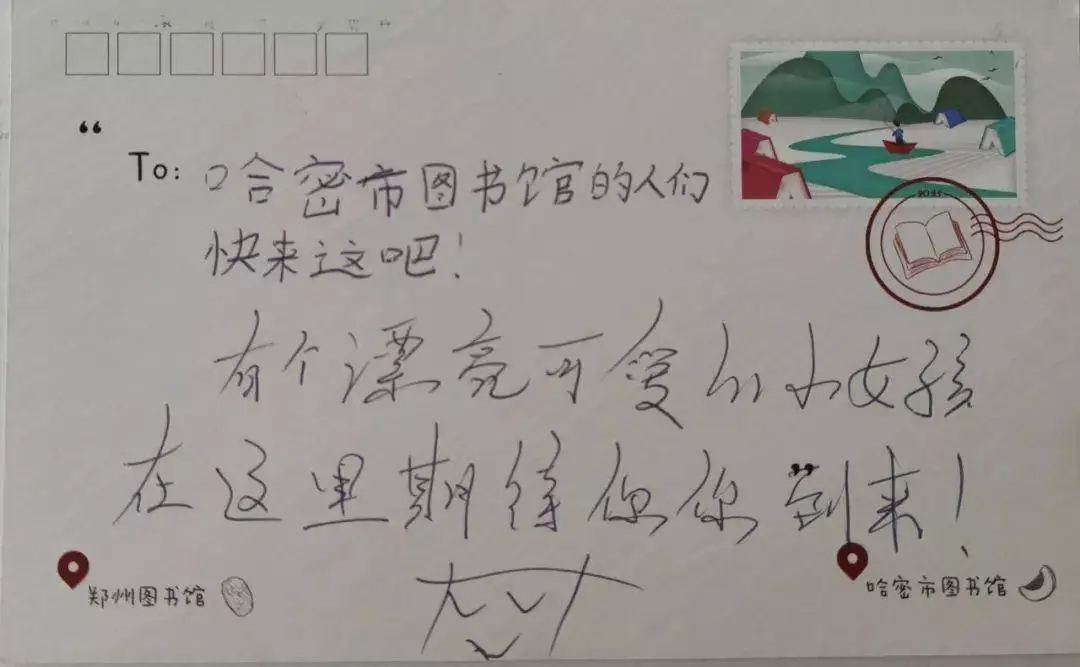 “
To: 哈密市图书馆的人们
快来这吧！
有个漂亮可爱的小女孩
在这里期待你你到来！
”
郑州图书馆
哈密市图书馆